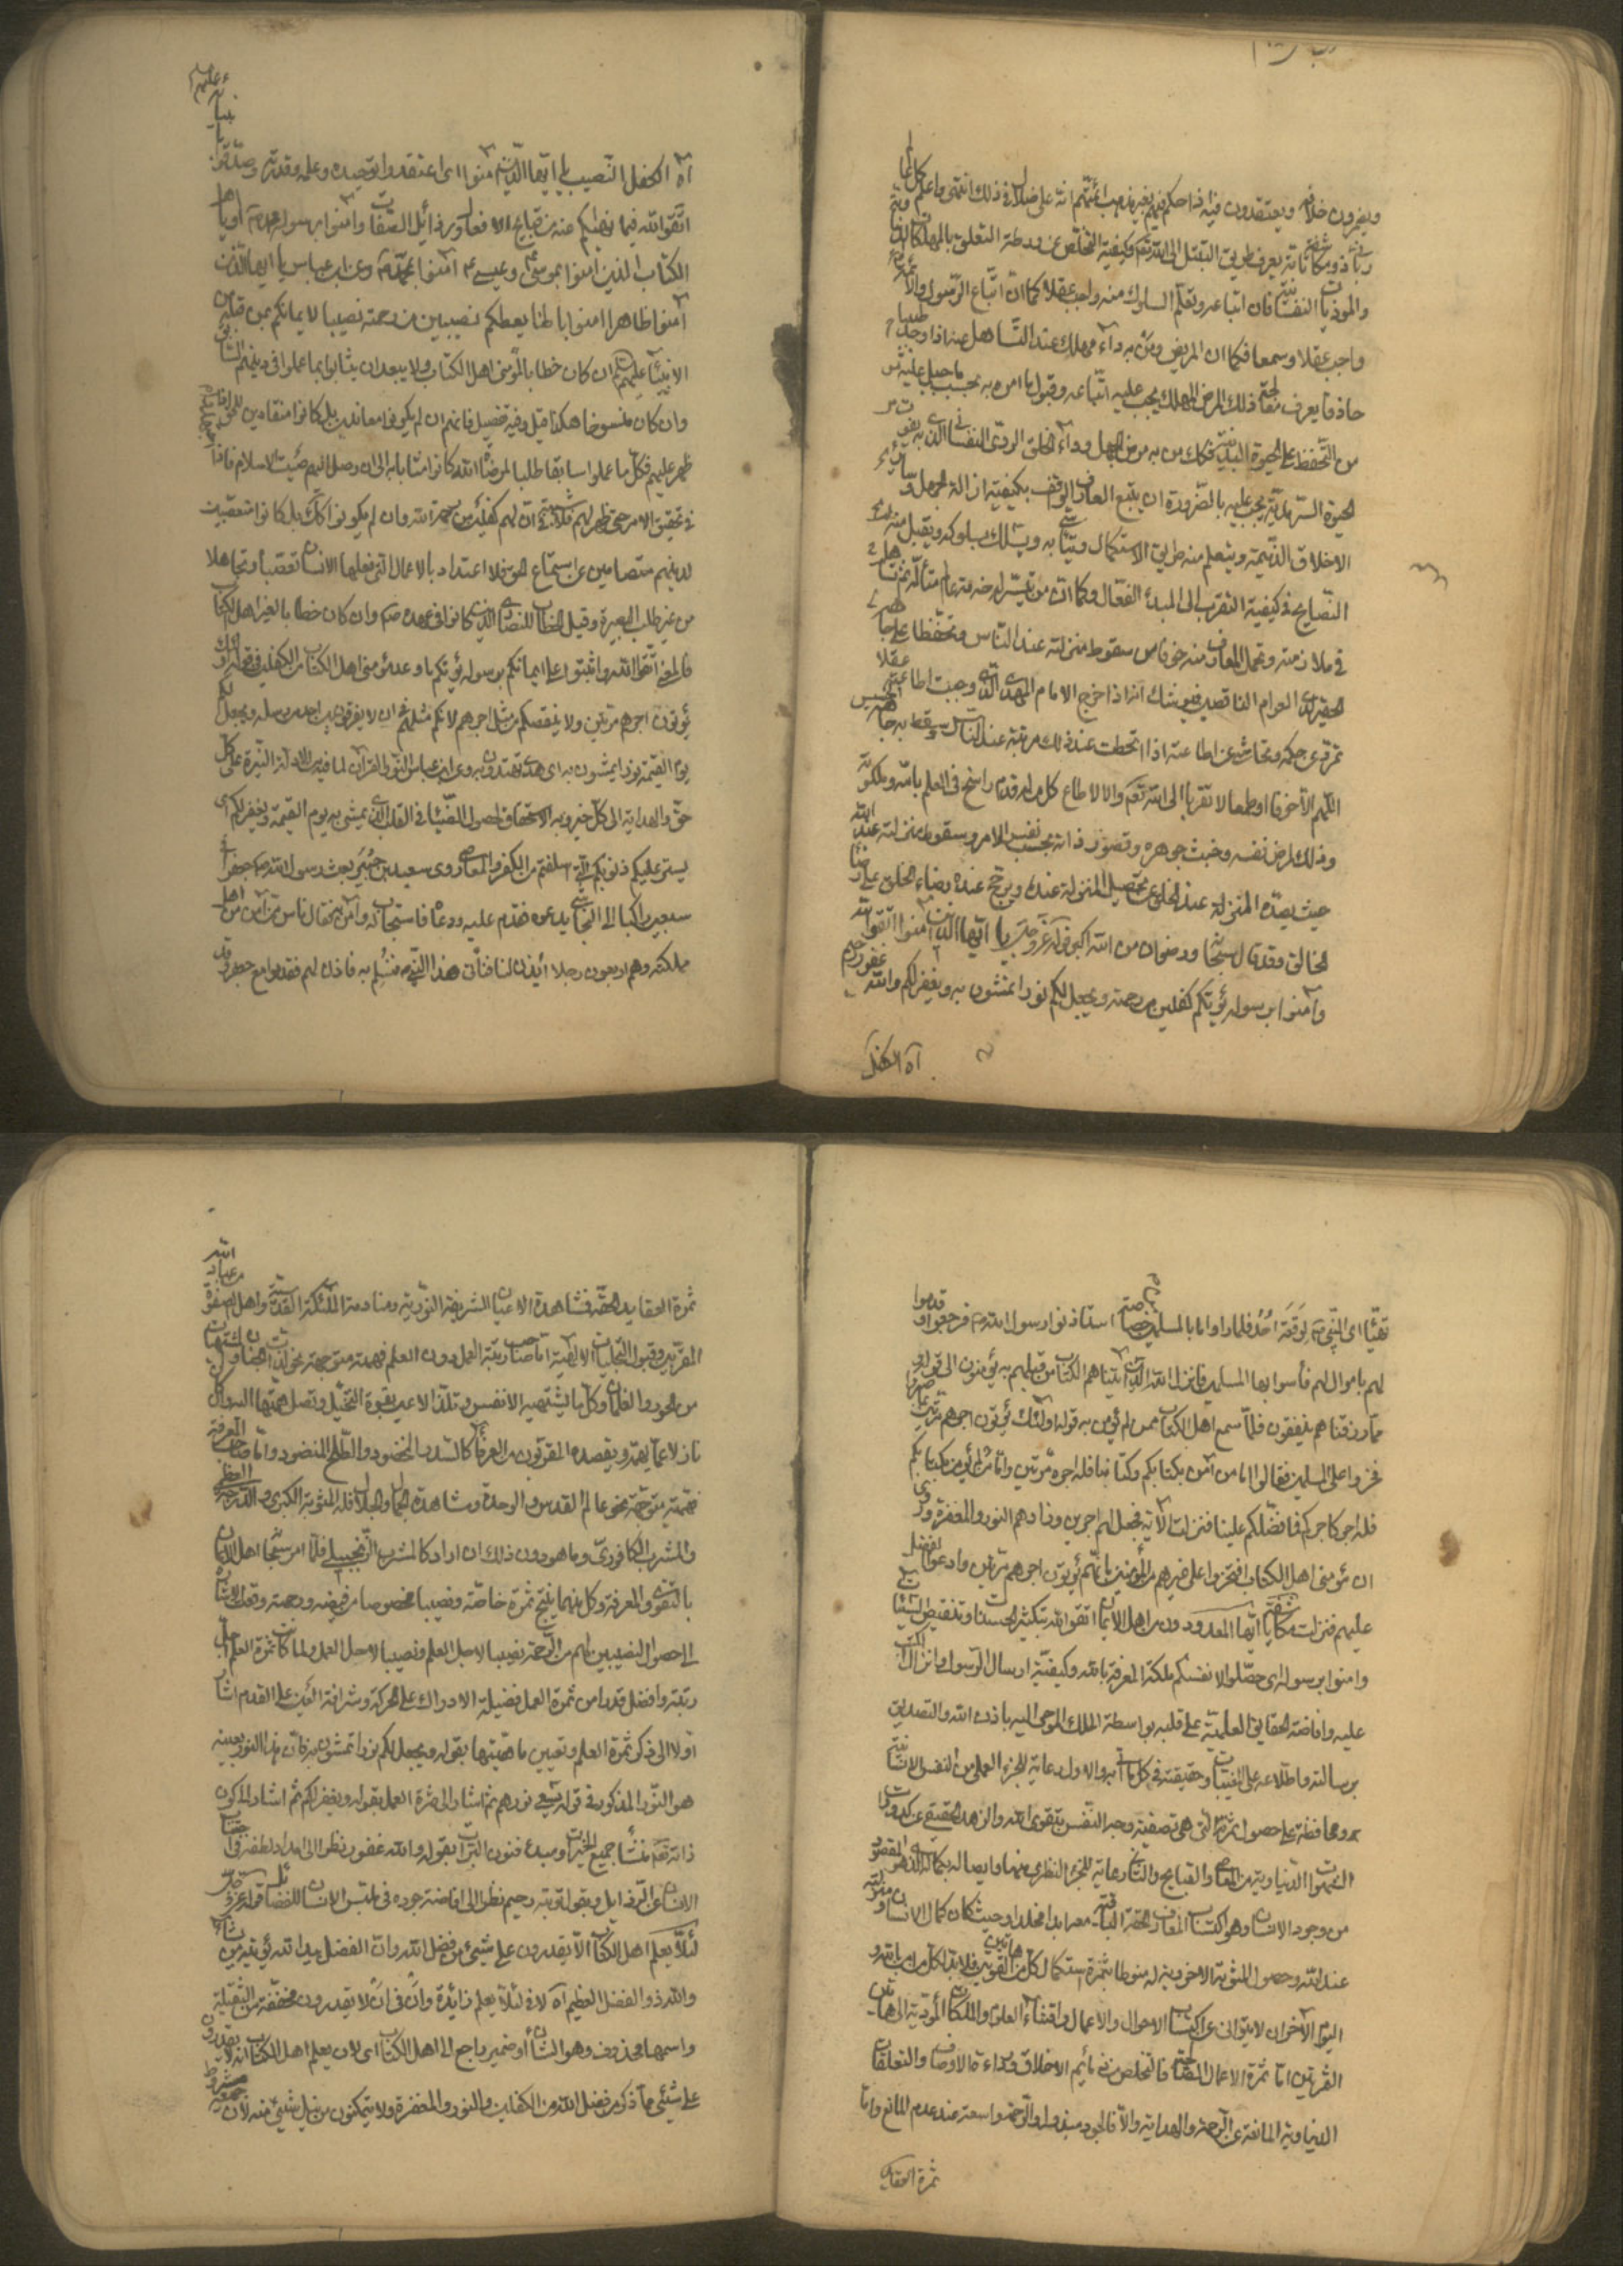 ويضمرون خلافه ويعتقدون فيه اذا حكم فيهم بغير مذهب ائمتهم انه على ضلال في ذلك انتهى واعلم
رباني ذو مكاشفات يعرف طريق التبتل الى الله تعالى وكيفية التخلص عن ورطة التعلق بالمهلكات
والموذيات النفسانية فان اتباعه وتعلم السلوك منه واجب عقلا كما ان اتباع الرسول والائمة
واجب عقلا وسمعا فكما ان المريض ومن به داء مهلك عند التساهل عنه اذا وجد طبيبا
حاذقا يعرف معالجة ذلك المرض المهلك يجب عليه اتباعه وقبول ما امره به بحسب ما جبل عليه
من التحفظ على الحيوة البدنية فكذلك من به مرض الجهل وداء الخلق الردي النفساني الذي به يفوت
الحيوة السرمدية يجب عليه بالضرورة ان يتبع العارف الواقف بكيفية ازالة الجهل وسائر
الاخلاق الذميمة ويتعلم منه طريق الاستكمال ويتشبث به ويسلك بسلوكه ويقبل منه
النصايح في كيفية التقرب الى المبدء الفعال وكما ان من تيسر له خدمة عالم متأله ثم تساهل
في ملازمته وتحمل المعارف منه خوفا من سقوط منزلته عند الناس وتحفظا على جاهه
الحقير لدى العوام الناقصين فيوشك انه اذا خرج الامام المهدي الذي وجبت اطاعته عقلا
تمرد عن حكمه وتحاشى عن اطاعته اذا انحطت عند ذلك مرتبته عند الناس وسقط به جاهه الخسيس
اللهم الا خوفا او طمعا لا تقربا الى الله تعالى والا لاطاع كل من له قدم راسخ في العلم بالله وملكوته
وذلك لمرض نفسه وخبث جوهره وقصور ذاته بحسب نفس الامر وسقوط منزلته عند الله
حيث يصده المنزلة عند الخلق عن تحصيل المنزلة عنده ويرجح عنده رضاء الخلق على رضا
الخالق وقد قال سبحانه ورضوان من الله اكبر قوله عز وجل يا ايها الذين آمنوا اتقوا الله
وآمنوا برسوله يؤتكم كفلين من رحمته ويجعل لكم نورا تمشون به ويغفر لكم والله غفور رحيم
آه الكفل
آه الكفل النصيب يا ايها الذين آمنوا اي اعتقدوا توحيده وعلمه وقدرته وصدقوا
اتقوا الله فيما نهاكم عنه من قبايح الافعال ورذائل الصفات وآمنوا برسوله محمد او يا اهل
الكتاب الذين آمنوا بموسى وعيسى آمنوا بمحمد وعن ابن عباس يا ايها الذين
آمنوا ظاهرا امنوا باطنا يعطكم نصيبين من رحمته نصيبا لايمانكم بمن قبله من
الانبياء عليهم السلام ان كان خطابا لمؤمني اهل الكتاب ولا يبعد ان يثابوا بما عملوا في دينهم السابق
وان كان منسوخا هكذا قيل وفيه تفصيل فانهم ان لم يكونوا معاندين بل كانوا منقادين للحق
ظهر عليهم فكل ما عملوا سابقا طلبا لمرضاة الله كانوا مثابا به الى ان وصل اليهم صيت الاسلام فاذا
في تحقيق الامر حتى ظهر لهم فلا شبهة في ان لهم كفلين من رحمة الله وان لم يكونوا كذلك بل كانوا متعصبين
لدينهم متصامين عن استماع الحق فلا اعتداد بالاعمال التي يفعلها الانسان تعصبا وتجاهلا
من غير طلب البصيرة وقيل الخطاب للنصارى الذين كانوا في عهده صم وان كان خطابا لغير اهل الكتاب
فالمعنى اتقوا الله واثبتوا على ايمانكم برسوله يؤتكم ما وعد مؤمني اهل الكتاب من الكفلين في قوله اولئك
يؤتون اجرهم مرتين ولا ينقصكم من مثل اجرهم لانكم مثلهم في ان لا يفرقون بين احد من رسله ويجعل لكم
يوم القيمة نورا يمشون به اي هدى تهتدون به وعن ابن عباس النور القرآن لما فيه الادلة النيرة على كل
حق والهداية الى كل خير وبه الاستحقاق لحصول الضياء في القلب الذي يمشى به يوم القيمة ويغفر لكم اي
يستر عليكم ذنوبكم التي اسلفتم من الكفر والمعاصي روى سعيد بن جبير بعث رسول الله جعفرا في
سبعين راكبا الى النجاشي يدعوه فقدم عليه ودعاه فاستجاب له وآمن به فقال ناس ممن آمن من اهل
مملكته وهم اربعون رجلا ائذن لنا فنأتي هذا النبي فنسلم به فاذن لهم فقدموا مع جعفر وقد
تهيأ اي النبي لوقعة احد فلما راوا ما بالمسلمين من خصاصة استاذنوا رسول الله فرجعوا وقدموا
لهم باموال لهم فأسوا بها المسلمين فانزل الله الذين آتيناهم الكتاب من قبلهم به يؤمنون الى قوله
مما رزقناهم ينفقون فلما سمع اهل الكتاب ممن لم يؤمن به قوله اولئك يؤتون اجرهم مرتين بما صبروا
فخروا على المسلمين فقالوا اما من آمن بكتابكم وكتابنا فله اجره مرتين واما من لم يؤمن بكتابكم
فله اجر كاجركم فما فضلكم علينا فنزلت الآية فجعل لهم اجرين وزادهم النور والمغفرة وروى
ان مؤمني اهل الكتاب افتخروا على غيرهم من المؤمنين بانهم يؤتون اجرهم مرتين وادعوا الفضل
عليهم فنزلت مكاشفة يا ايها المعدودون من اهل الايمان اتقوا الله بتكثير الحسنات وتنقيص السيئات
وامنوا برسوله اي حصلوا لانفسكم ملكة المعرفة بالله وكيفية ارسال الرسول وانزال الكتب
عليه وافاضة الحقايق العلمية على قلبه بواسطة الملك الموحى اليه باذن الله والتصديق
برسالته واطلاعه على المغيبات وحقيقته في كل ما اتى به والاول رعاية للجزء العملي من النفس الانسانية
ومحافظة على حصول ثمرته التي هي تصفية وجه النفس بتقوى الله والزهد الحقيقي عن كدورات
الشهوات الدنياوية من المعاصي والقبايح والثاني رعاية للجزء النظري منها وايصاله بكماله الذي هو المقصود
من وجود الانسان وهو اكتساب المعارف الحقة الباقية معه ابدا مخلدا وحيث كان كمال الانسان ومنزلته
عند الله وحصول المثوبة الاخروية له منوطا بثمرة استكمال كل من هاتين القوتين فلا بد لكل من امن بالله و
اليوم الآخر ان لا يتوانى عن اكتساب الاحوال والاعمال واقتناء العلوم والملكات المؤدية الى هاتين
الثمرتين اما ثمرة الاعمال الصالحة فالتخلص من ذمائم الاخلاق ورداءة الاوصاف والتعلقات
الدنياوية المانعة عن الرحمة والهداية والا فالجود مبذول والرحمة واسعة عند عدم المانع واما
ثمرة العقايد
ثمرة العقايد الحقة فمشاهدة الاعيان الشريفة النورية ومنادمة الملئكة القدسية واهل الصفوة من عباد الله
المقربين وقبول التجليات الالهية اما صاحب رتبة العمل دون العلم فهمته متوجهة نحو لذات الجنان ومشتهيات
من الحور والغلمان وكل ما يشتهيه الانفس وتلذ الاعين بقوة التخيل وتصل همتها الى كل
نازلا عما يعتد ويقصده المقربون من العرفاء كالسدر المخضود والطلح المنضود واما صاحب المعرفة
فهمته متوجهة نحو عالم القدس والوحدة ومشاهدة الجمال والجلال فله المثوبة الكبرى والدرجة العظمى
والمشرب الكافوري وما هو دون ذلك ان اراد كالمشرب الزنجبيلي فلما امر سبحانه اهل الايمان
بالتقوى والمعرفة وكل منهما ينتج ثمرة خاصة ونصيبا مخصوصا من فيضه ورحمته وقعت الاشارة
الى حصول النصيبين لهم من الرحمة نصيبا لاجل العلم ونصيبا لاجل العمل ولما كانت ثمرة العلم اجل
رتبة وافضل قدرا من ثمرة العمل لفضيلة الادراك على الحركة وشرافة العين على القدم اشار
اولا الى ذكر ثمرة العلم وتعيين ماهيتها بقوله ويجعل لكم نورا تمشون به فان هذا النور بعينه
هو النور المذكور في قوله يسعى نورهم ثم اشار الى ثمرة العمل بقوله ويغفر لكم ثم اشار الى كون
ذاته تعالى منشأ جميع الخيرات ومبدء فنون المبرات بقوله والله غفور نظرا الى امداد لطفه في اجتناب
الانسان عن الرذايل وبقوله رحيم نظرا الى افاضة جوده في تلبس الانسان للفضائل قوله عز وجل
لئلا يعلم اهل الكتاب الا يقدرون على شيئ من فضل الله وان الفضل بيد الله يؤتيه من يشاء
والله ذو الفضل العظيم آه لا في لئلا يعلم زائدة وان في ان لا يقدرون مخففة من الثقيلة
واسمها محذوف وهو الشأن أو ضمير راجع الى اهل الكتاب اي لان يعلم اهل الكتاب انه لا يقدرون
على شيئ مما ذكر من فضل الله من الكفلين والنور والمغفرة ولا يتمكنون من نيل شيئ منه لان